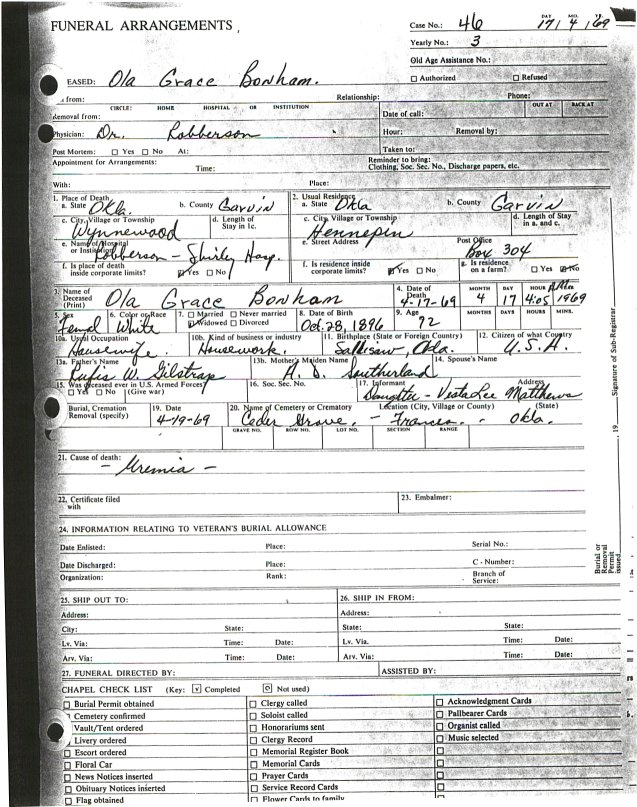 FUNERAL ARRANGEMENTS
Case No.: 46 DAY MO. YR. 17 | 4 | 69
Yearly No.: 3
Old Age Assistance No.:
EASED: Ola Grace Bonham. □ Authorized □ Refused
from: Relationship: Phone:
CIRCLE: HOME HOSPITAL OR INSTITUTION OUT AT BACK AT
Removal from: Date of call:
Physician: Dr. Robberson Hour: Removal by:
Post Mortem: □ Yes □ No At: Taken to:
Appointment for Arrangements: Time: Reminder to bring: Clothing, Soc. Sec. No., Discharge papers, etc.
With: Place:
1. Place of Death 2. Usual Residence
a. State Okla. b. County Garvin a. State Okla b. County Garvin
c. City, Village or Township d. Length of Stay in 1c. c. City, Village or Township d. Length of Stay in a. and c.
Wynnewood Hennepin
e. Name of Hospital or Institution Robberson - Shirley Hosp. e. Street Address Post Office Box 304
f. Is place of death inside corporate limits? Yes □ No f. Is residence inside corporate limits? Yes □ No g. Is residence on a farm? □ Yes No
3. Name of Deceased (Print) Ola Grace Bonham 4. Date of Death 4-17-69 MONTH 4 DAY 17 HOUR 4:05 1969
5. Sex 6. Color or Race 7. □ Married □ Never married 8. Date of Birth 9. Age MONTHS DAYS HOURS MINS.
Femal White Widowed □ Divorced Oct. 28, 1896 72
10a. Usual Occupation 10b. Kind of business or industry 11. Birthplace (State or Foreign Country) 12. Citizen of what Country
Housewife. Housework. Sallisaw, Okla. U.S.A.
13a. Father's Name 13b. Mother's Maiden Name 14. Spouse's Name
Rufis W. Gilstrap Southerland
15. Was deceased ever in U.S. Armed Forces? 16. Soc. Sec. No. 17. Informant Address
□ Yes □ No (Give war) Daughter - Vesta Lee Matthews
Burial, Cremation Removal (specify) 19. Date 20. Name of Cemetery or Crematory Location (City, Village or County) (State)
4-19-69 Ceder Grove. - Frances. - Okla.
GRAVE NO. ROW NO. LOT NO. SECTION RANGE
21. Cause of death:
- Uremia -
22. Certificate filed with 23. Embalmer:
24. INFORMATION RELATING TO VETERAN'S BURIAL ALLOWANCE
Date Enlisted: Place: Serial No.:
Date Discharged: Place: C - Number:
Organization: Rank: Branch of Service:
25. SHIP OUT TO: 26. SHIP IN FROM:
Address: Address:
City: State: State: State:
Lv. Via: Time: Date: Lv. Via. Time: Date:
Arv. Via: Time: Date: Arv. Via: Time: Date:
27. FUNERAL DIRECTED BY: ASSISTED BY:
CHAPEL CHECK LIST (Key: Completed Not used)
□ Burial Permit obtained □ Clergy called □ Acknowledgment Cards
Cemetery confirmed □ Soloist called □ Pallbearer Cards
Vault/Tent ordered □ Honorariums sent □ Organist called
Livery ordered □ Clergy Record □ Music selected
□ Escort ordered □ Memorial Register Book □
□ Floral Car □ Memorial Cards □
□ News Notices inserted □ Prayer Cards □
□ Obituary Notices inserted □ Service Record Cards □
□ Flag obtained □ Flower Cards to family □
Burial or Removal Permit issued 19 Signature of Sub-Registrar